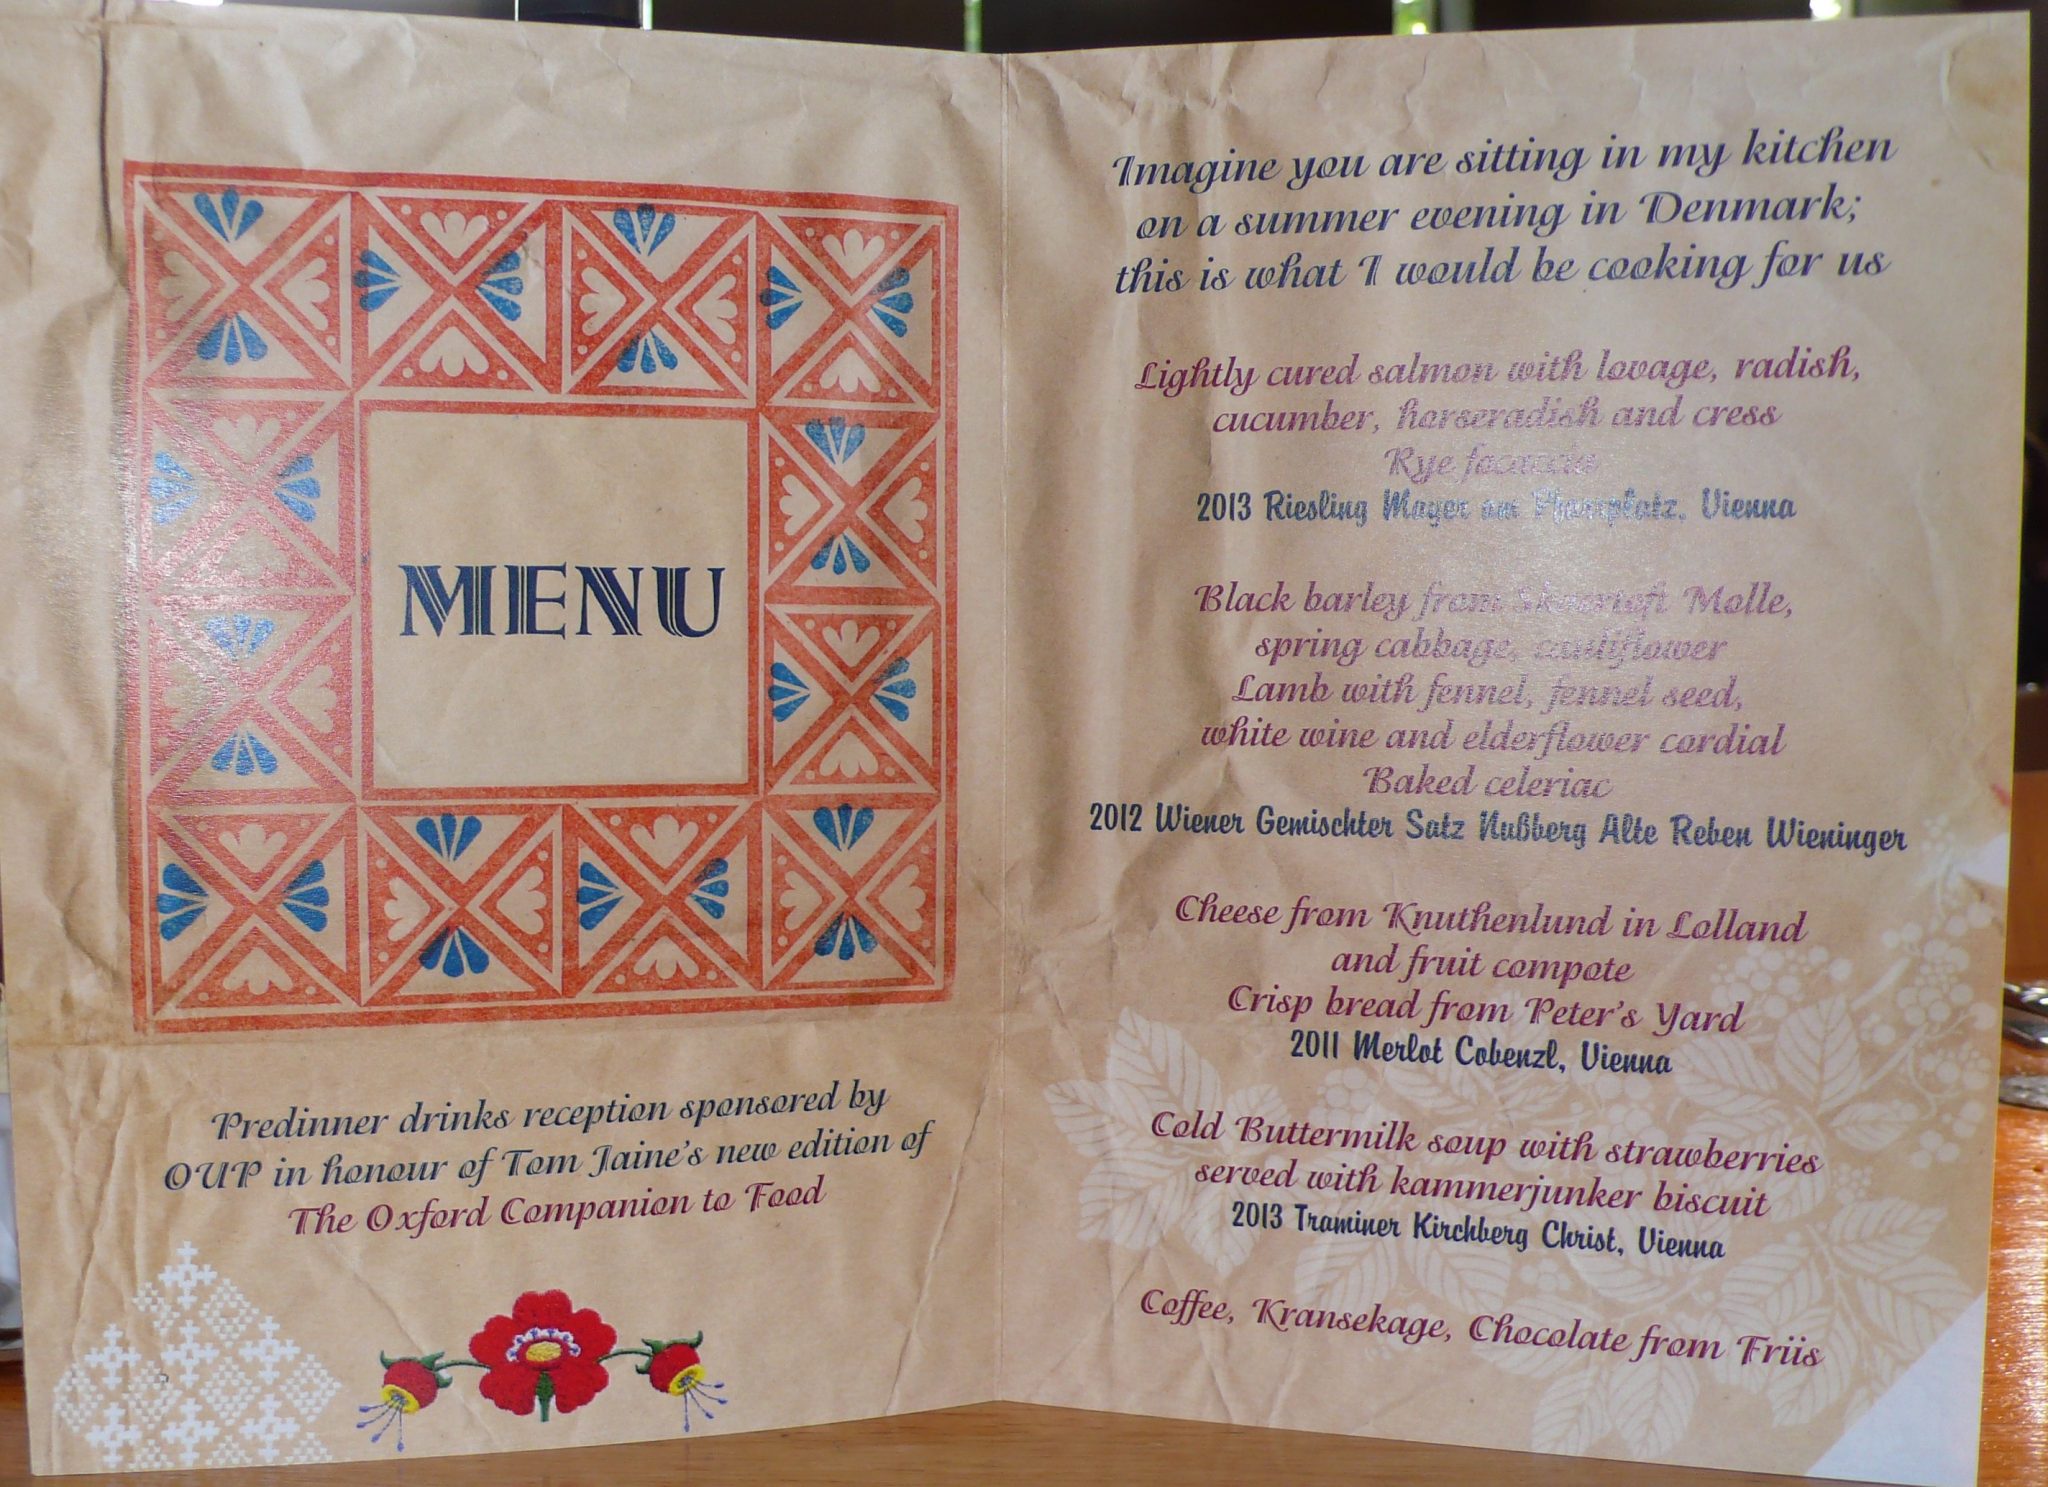 MENU
Predinner drinks reception sponsored by
OUP in honour of Tom Jaine's new edition of
The Oxford Companion to Food
Imagine you are sitting in my kitchen
on a summer evening in Denmark;
this is what I would be cooking for us
Lightly cured salmon with lovage, radish,
cucumber, horseradish and cress
Rye focaccia
2013 Riesling Mayer am Pfarrplatz, Vienna
Black barley from Molle,
spring cabbage, cauliflower
Lamb with fennel, fennel seed,
white wine and elderflower cordial
Baked celeriac
2012 Wiener Gemischter Satz Nußberg Alte Reben Wieninger
Cheese from Knuthenlund in Lolland
and fruit compote
Crisp bread from Peter's Yard
2011 Merlot Cobenzl, Vienna
Cold Buttermilk soup with strawberries
served with kammerjunker biscuit
2013 Traminer Kirchberg Christ, Vienna
Coffee, Kransekage, Chocolate from Friis